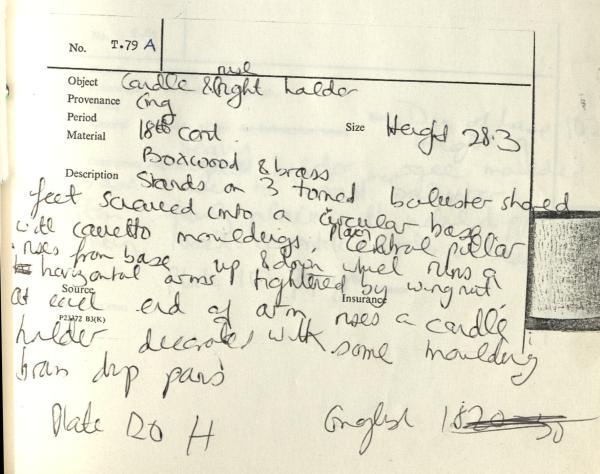 No. T.79 A
rush
Object Candle & light holder
Provenance Eng
Period 18th cent. Size Height 28.3
Material Boxwood & brass
Description Stands on 3 turned baluster shaped
feet screwed into a circular base
with cavetto mouldings. Plain central pillar
rises from base up & down which runs a
horizontal arms tightened by wingnut
Source Insurance
at each end of arm rises a candle
P23372 B3(K)
holder decorated with some moulding
brass drip pans
Plate 20 H English 1820-30